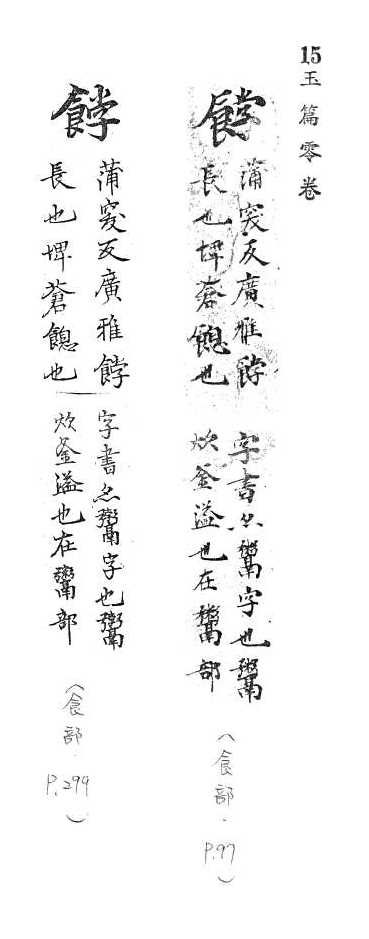 15玉篇零卷
餑
蒲突反廣雅餑
長也埤蒼䭒也
字書亦字也
炊釜溢也在䰜部
(食部.P.97)
餑
蒲突反廣雅餑
長也埤蒼䭒也
字書亦字也
炊釜溢也在䰜部
(食部.P.299)